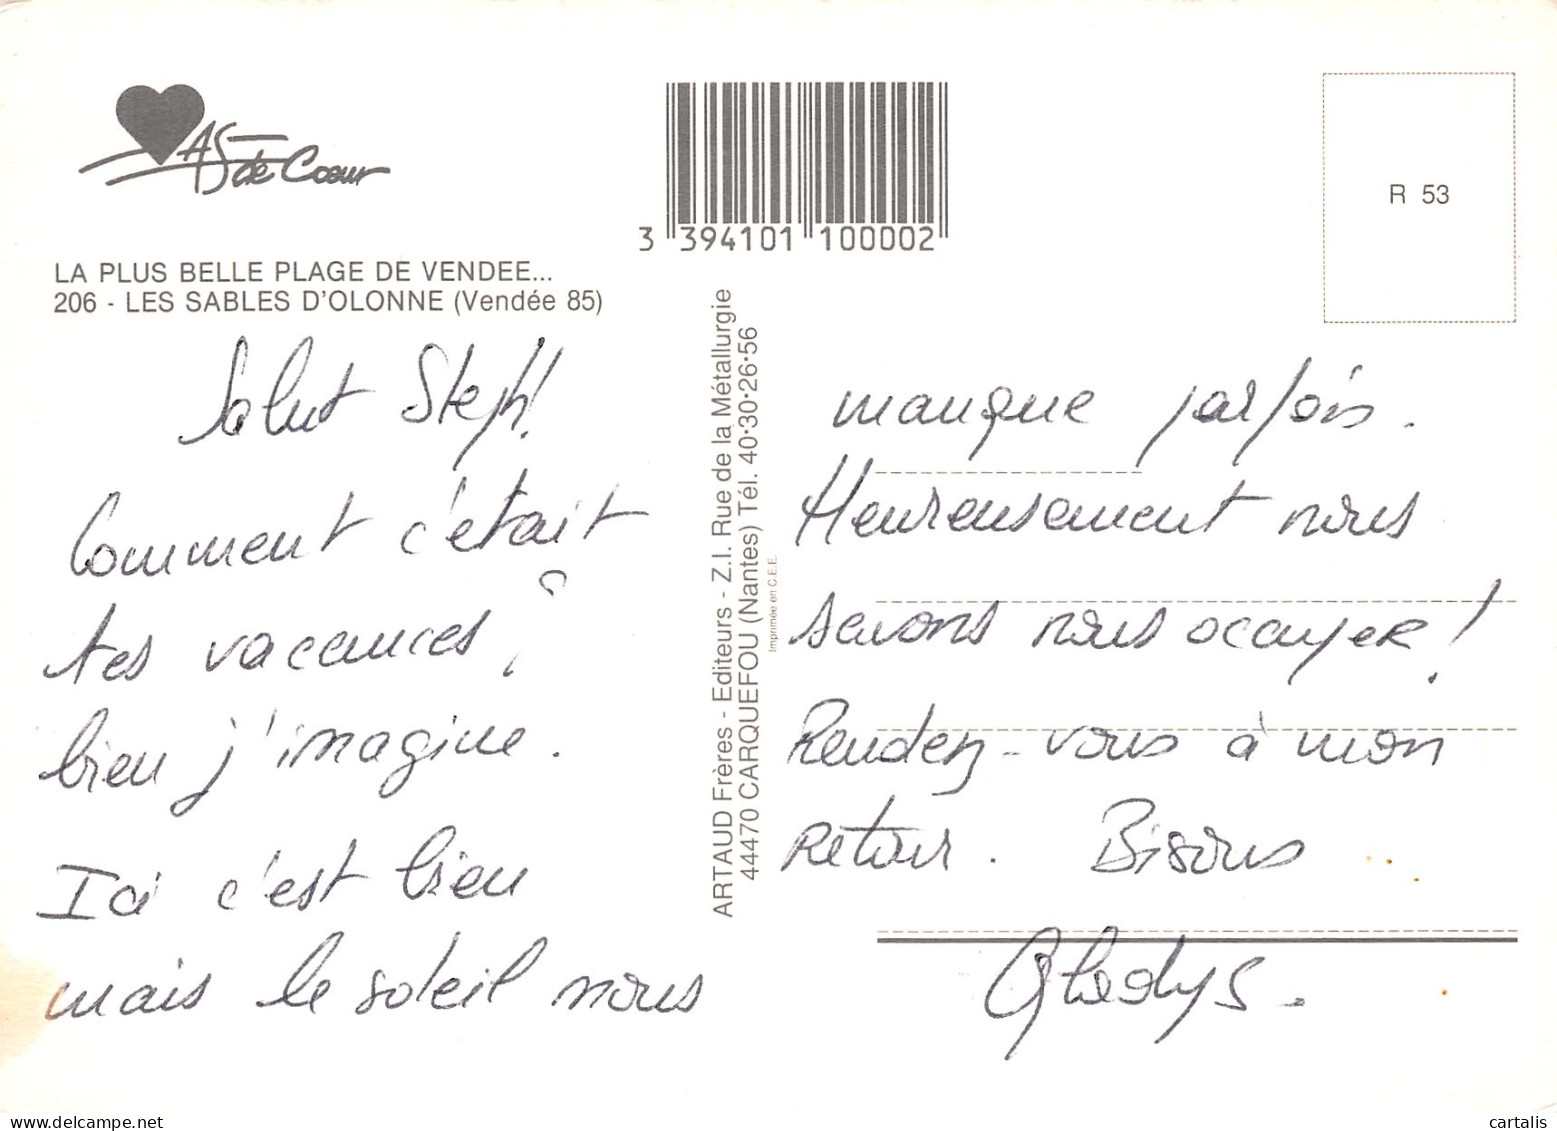 AS de Coeur
3 394101 100002
R 53
LA PLUS BELLE PLAGE DE VENDEE...
206 - LES SABLES D'OLONNE (Vendée 85)
Salut Steph!
Comment c'était
tes vacances ?
bien j'imagine.
Ici c'est bien
mais le soleil nous
ARTAUD Frères - Editeurs - Z.I. Rue de la Métallurgie
44470 CARQUEFOU (Nantes) Tél. 40·30·26·56
Imprimée en C.E.E.
manque parfois.
Heureusement nous
savons nous occuper!
Rendez-vous à mon
retour. Bisous
Gladys.
cartalis